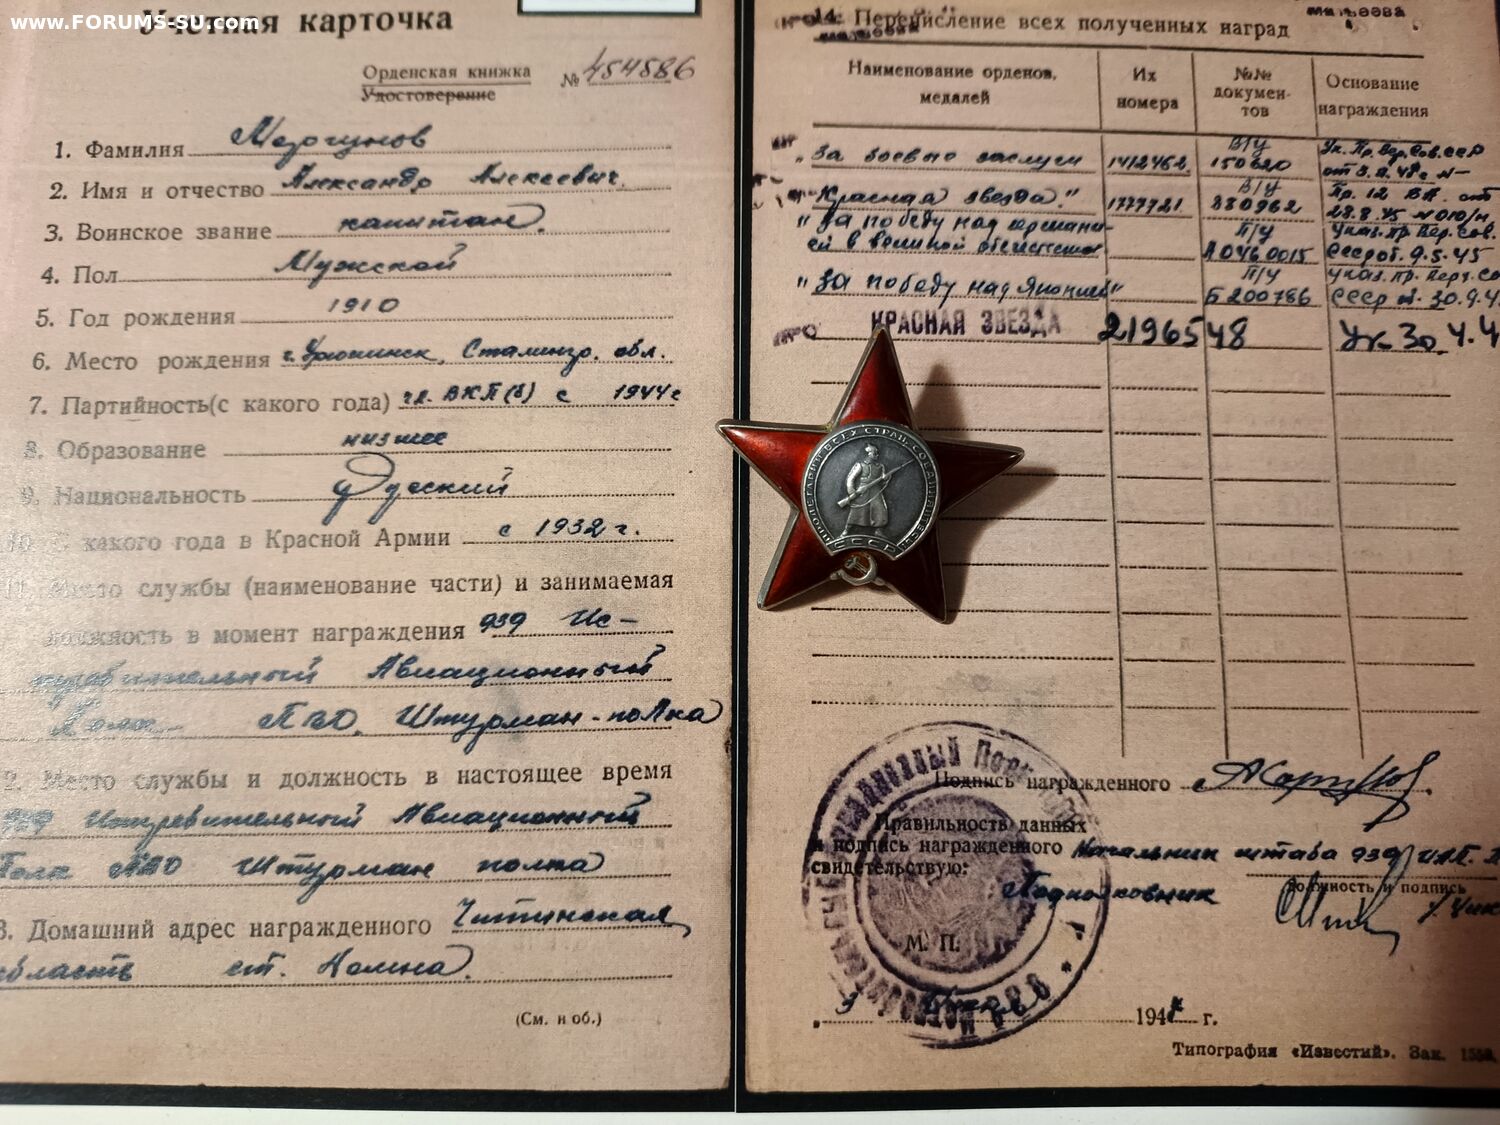 www.FORUMS-SU.com
Учетная карточка
Орденская книжка
Удостоверение
№ 454586
1. Фамилия Моргунов
2. Имя и отчество Александр Алексеевич.
3. Воинское звание капитан.
4. Пол Мужской
5. Год рождения 1910
6. Место рождения г. Урюпинск, Сталингр. обл.
7. Партийность(с какого года) чл. ВКП(б) с 1944г
8. Образование низшее
9. Национальность Русский
10. С какого года в Красной Армии с 1932 г.
11. Место службы (наименование части) и занимаемая
должность в момент награждения 939 Ис-
требительный Авиационный
Полк ПВО. Штурман-полка
2. Место службы и должность в настоящее время
939 Истребительный Авиационный
Полк ПВО Штурман полка
3. Домашний адрес награжденного Читинская
область ст.
(См. н об.)
14. Перечисление всех полученных наград
Наименование орденов, медалей
Их номера
№№ документов
Основание награждения
"За боевые заслуги 1412462. В/У 150620 Ук. Пр. Вер. Сов. СССР
"Красная звезда." 1777721 В/У 280962 Пр. 12 ВА. от 28.8.45 N 010/н
"За победу над германи-
ей в великой отечествен П/У Л0460015 Указ. Пр. Вер. Сов. СССР от. 9.5.45
"За победу над Японией" П/У Б200786 Указ. Пр. Верх. Со СССР от. 30.9.4
КРАСНАЯ ЗВЕЗДА 2196548 Ук 30.4.4
ПРОЛЕТАРИИ ВСЕХ СТРАН, СОЕДИНЯЙТЕСЬ!
СССР
Подпись награжденного
Правильность данных
и подпись награжденного Начальник штаба 939 ИАП. П
свидетельствую:
должность и подпись
Подполковник
М. П.
939
194 г.
Типография «Известий». Зак.